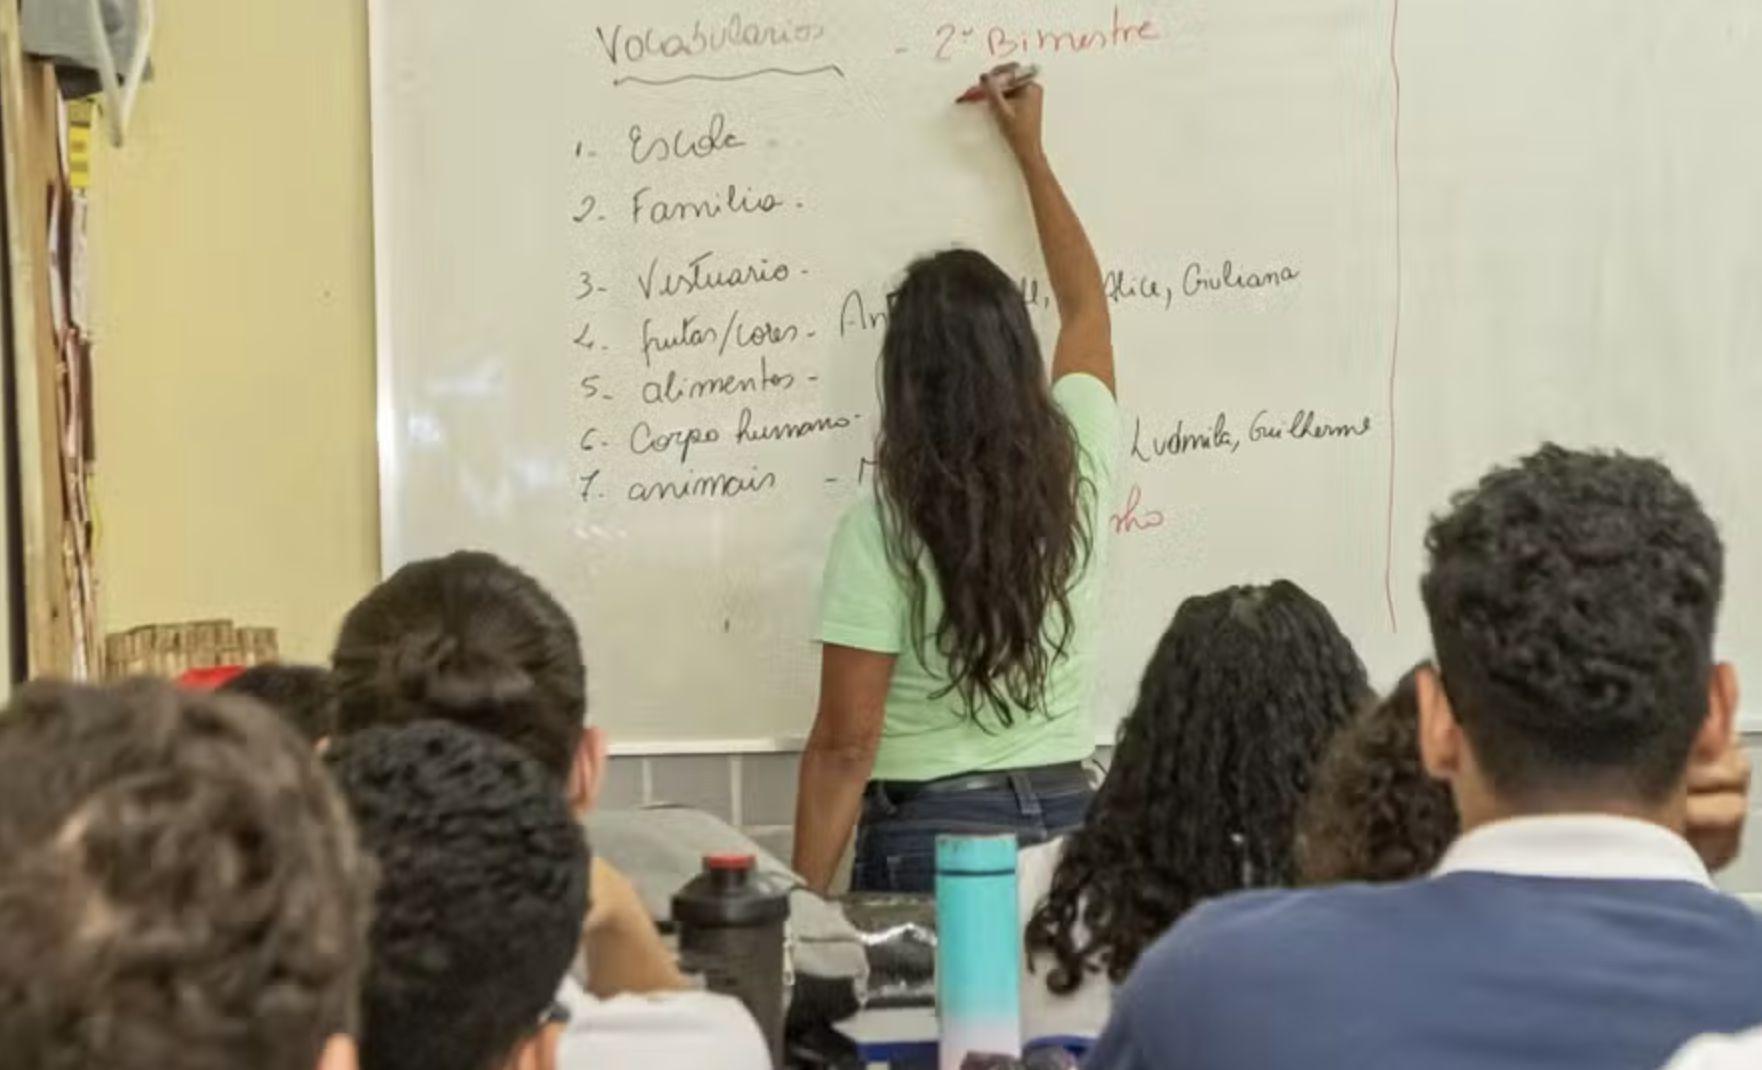 Vocabularios - 2º Bimestre
1- Escola
2- Familia.
3- Vestuario- Alice, Giuliana
4- frutas/cores-
5- alimentos-
6- Corpo humano- Ludmila, Guilherme
7- animais -